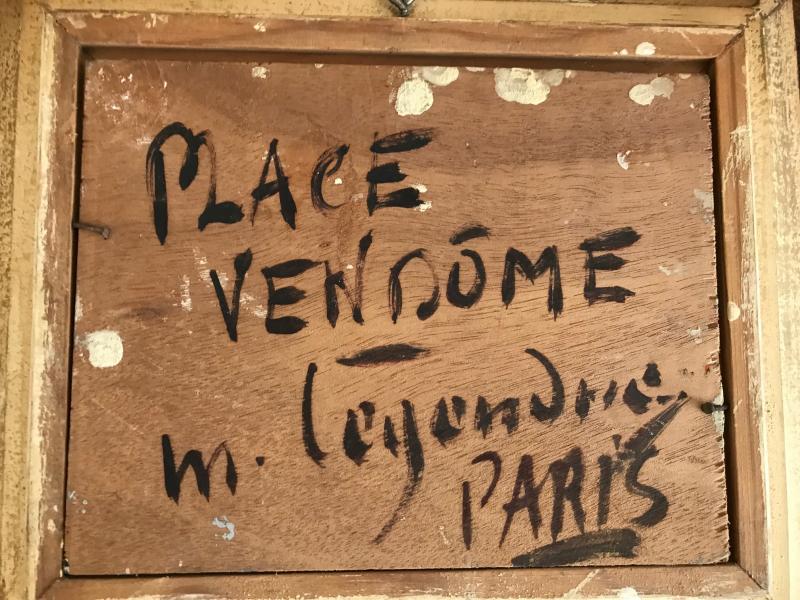 PLACE
VENDÔME
m. Legendre
PARIS